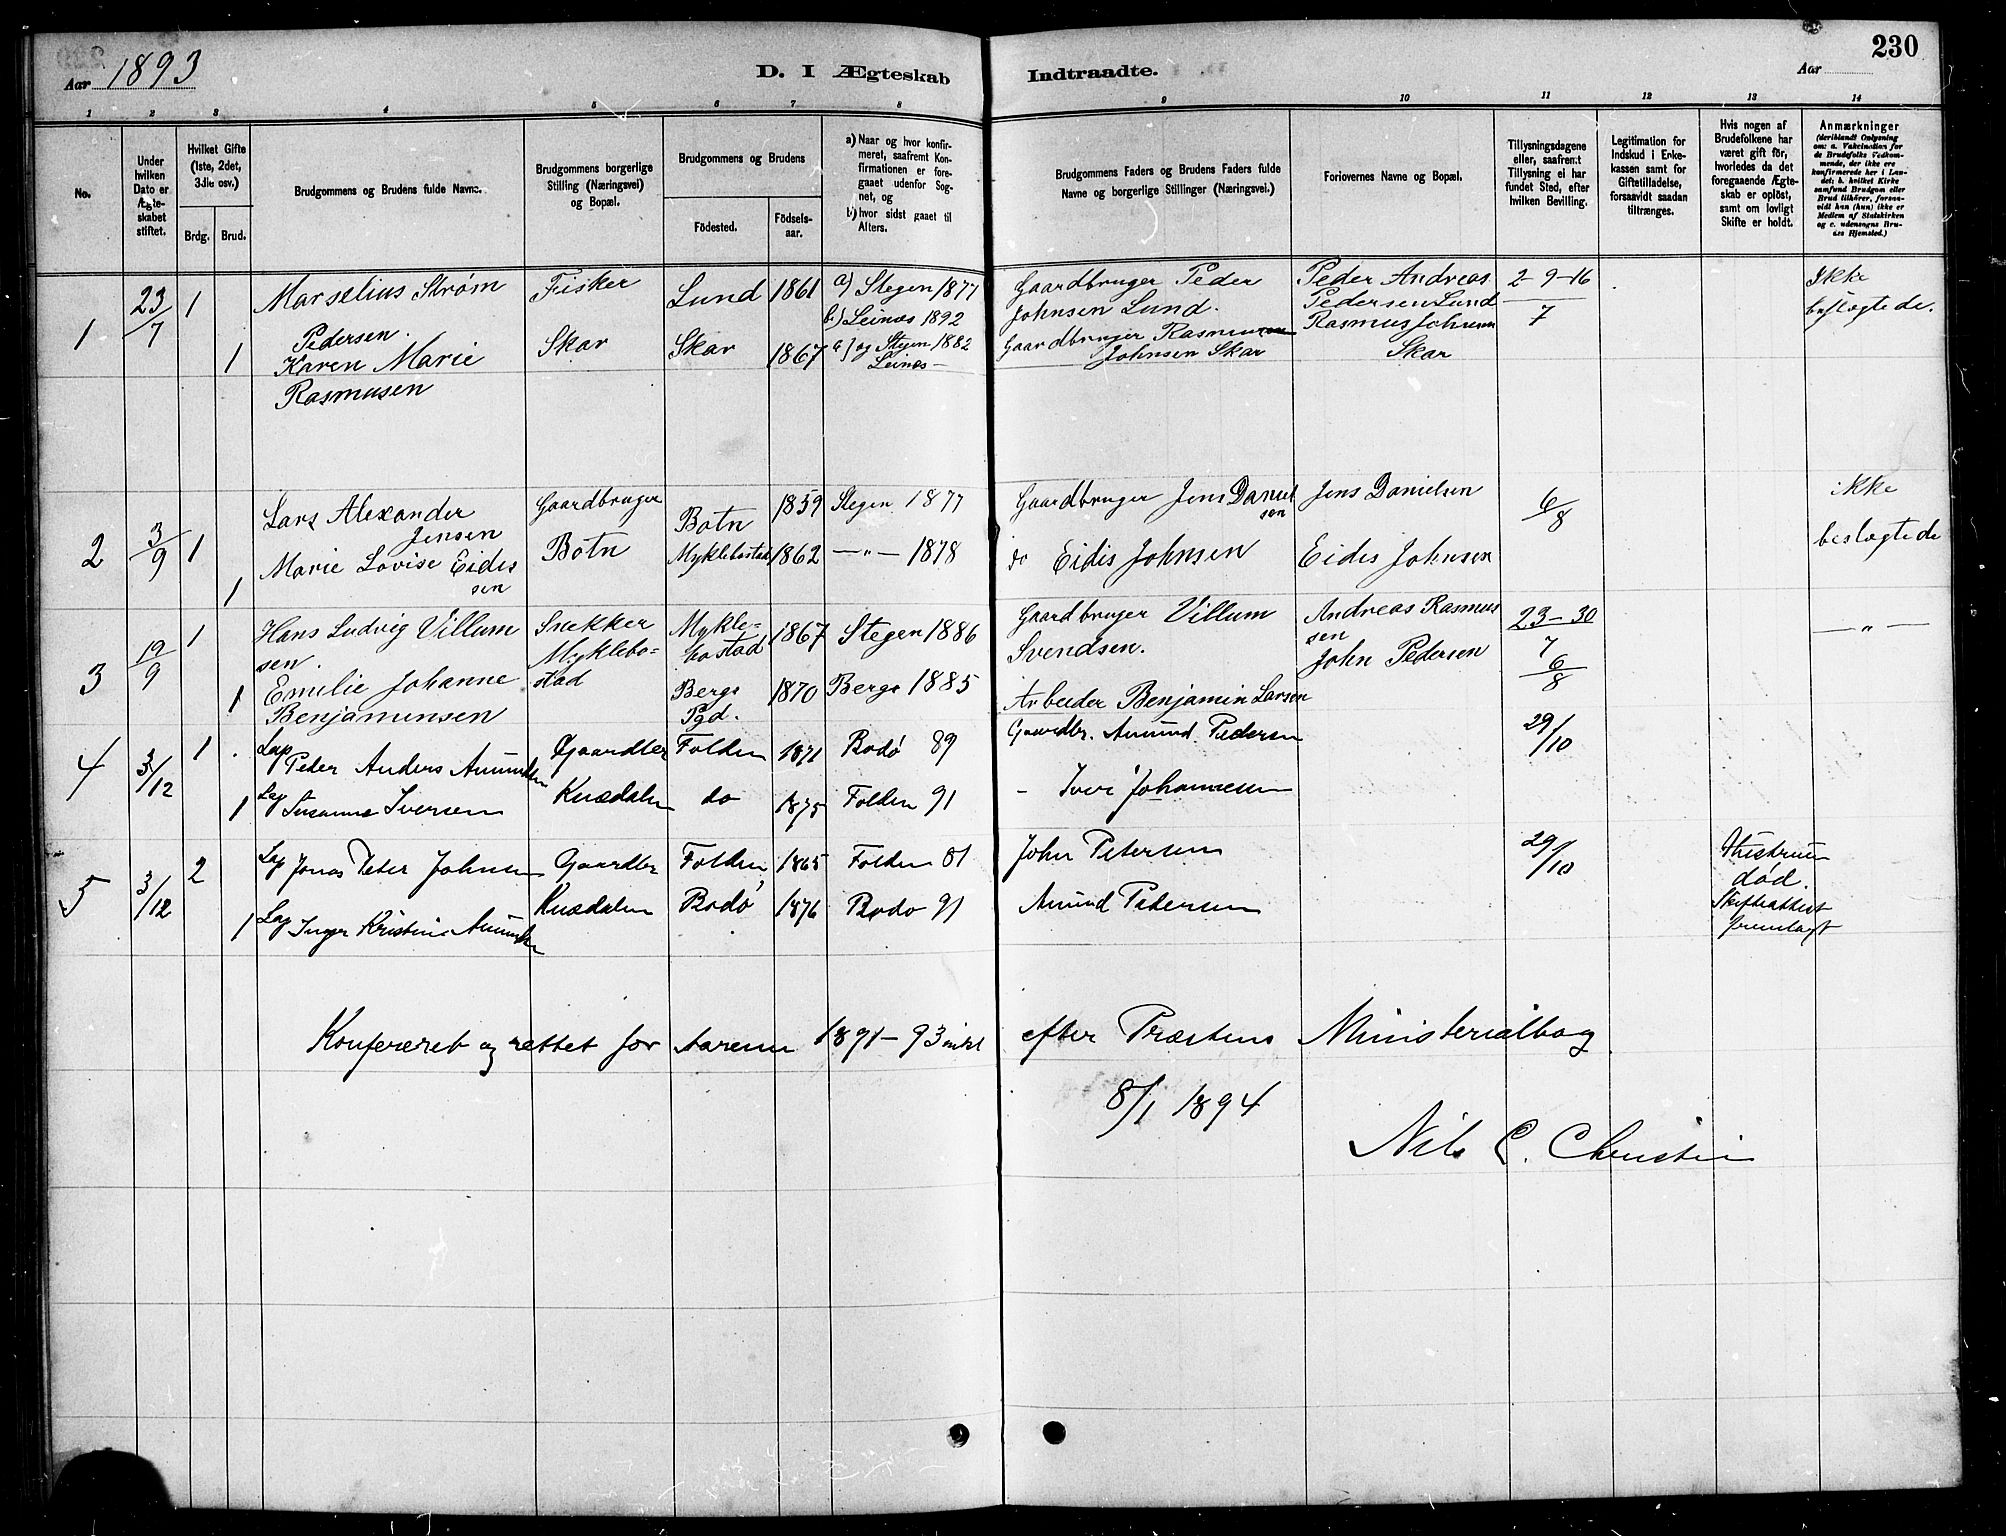 Aar 1893
D. I Ægteskab Indtraadte.
Aar
230
1 2 3 4 5 6 7 8 9 10 11 12 13 14
No.
Under hvilken Dato er Ægteskabet stiftet.
Hvilket Gifte (1ste, 2det, 3die osv.)
Brdg. Brud.
Brudgommens og Brudens fulde Navne.
Brudgommens borgerlige Stilling (Næringsvei) og Bopæl.
Brudgommens og Brudens
Födested.
Födselsaar.
a) Naar og hvor konfirmeret, saafremt Konfirmationen er foregaaet udenfor Sognet, og
b) hvor sidst gaaet til Alters.
Brudgommens Faders og Brudens Faders fulde Navne og borgerlige Stillinger (Næringsvei.)
Forlovernes Navne og Bopæl.
Tillysningsdagene eller, saafremt Tillysning ei har fundet Sted, efter hvilken Bevilling.
Legitimation for Indskud i Enkekassen samt for Giftetilladelse, forsaavidt saadan tiltrænges.
Hvis nogen af Brudefolkene har været gift för, hvorledes da det foregaaende Ægteskab er oplöst, samt om lovligt Skifte er holdt.
Anmærkninger
(deriblandt Oplysning om: a. Vakcination for de Brudefolks Vedkommende, der ikke ere konfirmerede her i Landet; b. hvilket Kirkesamfund Brudgom eller Brud tilhörer, forsaavidt han (hun) ikke er Medlem af Statskirken og c. udensogns Brudes Hjemsted.)
1 23/7 1 Marselius Strøm Pedersen. Fisker Lund 1861 a) Stegen 1877 b) Leinæs 1892 Gaardbruger Peder Johnsen Lund. Peder Andreas Pedersen Lund 2-9-16/7 Ikke beslægtede.
1 Karen Marie Rasmusen Skar Skar 1867 a) og Stegen 1882 Leinæs - Gaardbruger Rasmus Johnsen Skar Rasmus Johnsen Skar
2 3/9 1 Lars Alexander Jensen Gaardbruger Botn 1859 Stegen 1877 Gaardbruger Jens Danielsen Jens Danielsen 6/8 ikke beslægtede
1 Marie Lovise Eidissen Botn Myklebostad 1862 -"- 1878 do Eidis Johnsen Eidis Johnsen
3 19/9 1 Hans Ludvig Villumsen. Snekker Myklebostad Myklebostad 1867 Stegen 1886 Gaardbruger Villum Svendsen. Andreas Rasmussen 23-30/7 -"-
1 Emilie Johanne Benjaminsen Bergs Pgd. 1870 Bergs 1885 Arbeider Benjamin Larsen John Pedersen 6/8
4 3/12 1 Lap Peder Anders Amundsen Gaardbr Folden 1871 Bodø 89 Gaardbr. Amund Pedersen 29/10
1 Lap Susanna Iversen Knædalen do 1875 Folden 91 - Iver Johannesen
5 3/12 2 Lap Jonas Peter Johnsen Gaardbr Folden 1865 Folden 81 John Petersen 29/10 Hustruen død. Skifteattest fremlagt
1 Lap Inger Kristine Amundsen Knædalen Bodø 1876 Bodø 91 Amund Pedersen
Konfereret og rettet for Aarene 1891-93 inkl efter Præstens Ministerialbog
8/1 1894
Nils C. Christin